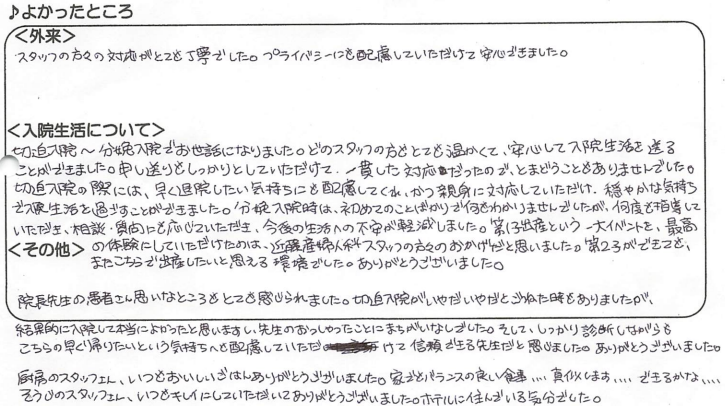 ♪よかったところ
＜外来＞
スタッフの方々の対応がとても丁寧でした。プライバシーにも配慮していただけて安心できました。
＜入院生活について＞
切迫入院～分娩入院でお世話になりました。どのスタッフの方もとても温かくて、安心して入院生活を送る
ことができました。申し送りもしっかりとしていただけて、一貫した対応だったので、とまどうこともありませんでした。
切迫入院の際には、早く退院したい気持ちにも配慮してくれ、かつ親身に対応していただけ、穏やかな気持ち
で入院生活を過ごすことができました。分娩入院時は、初めてのことばかりで何もわかりませんでしたが、何度も指導して
いただき、相談・質問にも応じていただき、今後の生活への不安が軽減しました。第1子出産という一大イベントを、最高
＜その他＞ の体験にしていただけたのは、近藤産婦人科スタッフの方々のおかげだと思いました。第2子ができても、
またこちらで出産したいと思える環境でした。ありがとうございました。
院長先生の患者さん思いなところもとても感じられました。切迫入院がいやだいやだとごねた時もありましたが、
結果的に入院して本当によかったと思いますし、先生のおっしゃったことにまちがいなしでした。そして、しっかり診断しながらも
こちらの早く帰りたいという気持ちへも配慮していただけて信頼できる先生だと思いました。ありがとうございました。
厨房のスタッフさん、いつもおいしいごはんありがとうございました。家でもバランスの良い食事....真似します....できるかな....
そうじのスタッフさん、いつもキレイにしていただいてありがとうございました。ホテルに住んでいる気分でした。